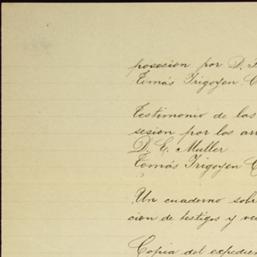 posesion por D.
Tomás Irigoyen
Testimonio de las
sesion por los
D. E. Muller
Tomás Irigoyen
Un cuaderno sobr
cion de testigos y
Copia del expedien